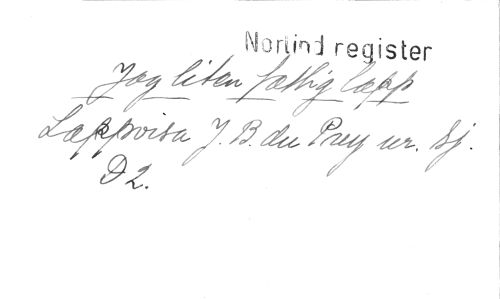 Norlind register
Jag liten fattig lapp
Lappvisa J. B. du Puy ur. Sj.
D2.